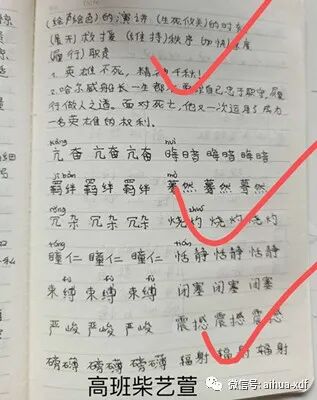 (绘声绘色)的演讲 (生死攸关)的时刻
救援 (维持)秩序 (加快)速度
(履行)职责
1. 英雄不死,精神千秋!
2. 哈尔威船长一生都要求自己忠于职守,履
行做人之道。面对死亡,他又一次运用了成为
一名英雄的权利。
kàng huì
亢奋 亢奋 亢奋 晦暗 晦暗 晦暗
jī bàn mò
羁绊 羁绊 羁绊 蓦然 蓦然 蓦然
rǒng zhuó
冗杂 冗杂 冗杂 烧灼 烧灼 烧灼
tóng tián
瞳仁 瞳仁 瞳仁 恬静 恬静 恬静
fù fù
束缚 束缚 束缚 闭塞 闭塞 闭塞
严峻 严峻 严峻 震撼 震撼 震撼
磅礴 磅礴 磅礴 辐射 辐射 辐射
高班柴艺萱
微信号: aihua-xdf